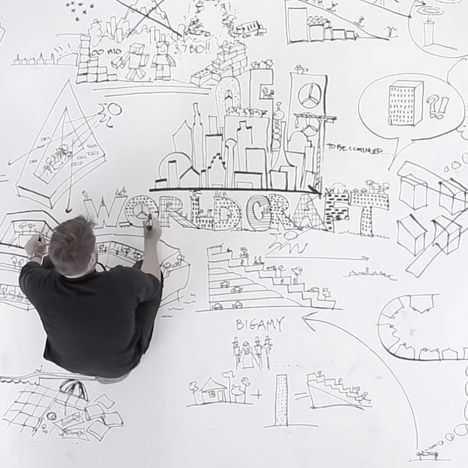 3.7 BIO!!
TO BE CONTINUED...
WORLDCRAFT
BIGAMY